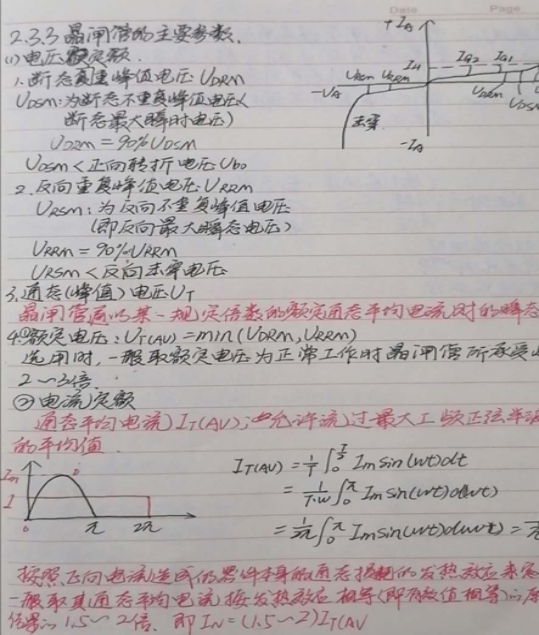 Date
Page
2.3.3 晶闸管的主要参数.
(1) 电压额定额.
1. 断态重复峰值电压 UDRM
UDSM: 为断态不重复峰值电压(
断态最大瞬时电压)
UDRM = 90% UDSM
UDSM < 正向转折电压 Ubo
2. 反向重复峰值电压 URRM
URSM: 为反向不重复峰值电压
(即反向最大瞬态电压)
URRM = 90% URRM
URSM < 反向击穿电压
3. 通态(峰值)电压 UT
晶闸管通以某一规定倍数的额定通态平均电流时的瞬态
4. 额定电压: UT(AV) = min(UDRM, URRM)
选用时, 一般取额定电压为正常工作时晶闸管所承受
2~3倍.
② 电流定额
通态平均电流 IT(AV); 允许流过最大工频正弦半波
的平均值.
+IA
IH IG2 IG1
URSM URRM
-UA
UDRM UDSM
击穿
-IA
Im
I
0 π 2π
IT(AV) = 1/T ∫ Im sin(wt) dt
= 1/T·w ∫₀^π Im sin(wt) d(wt)
= 1/2π ∫₀^π Im sin(wt) d(wt) =
按照正向电流造成的器件本身的通态损耗的发热效应来定
一般取其通态平均电流按发热效应相等(即有效值相等)的原
倍率的 1.5~2倍. 即 IN = (1.5~2) IT(AV